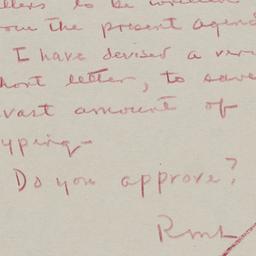 to be written
the present agend
I have devised a very
hort letter, to save
vast amount of
yping-
Do you approve?